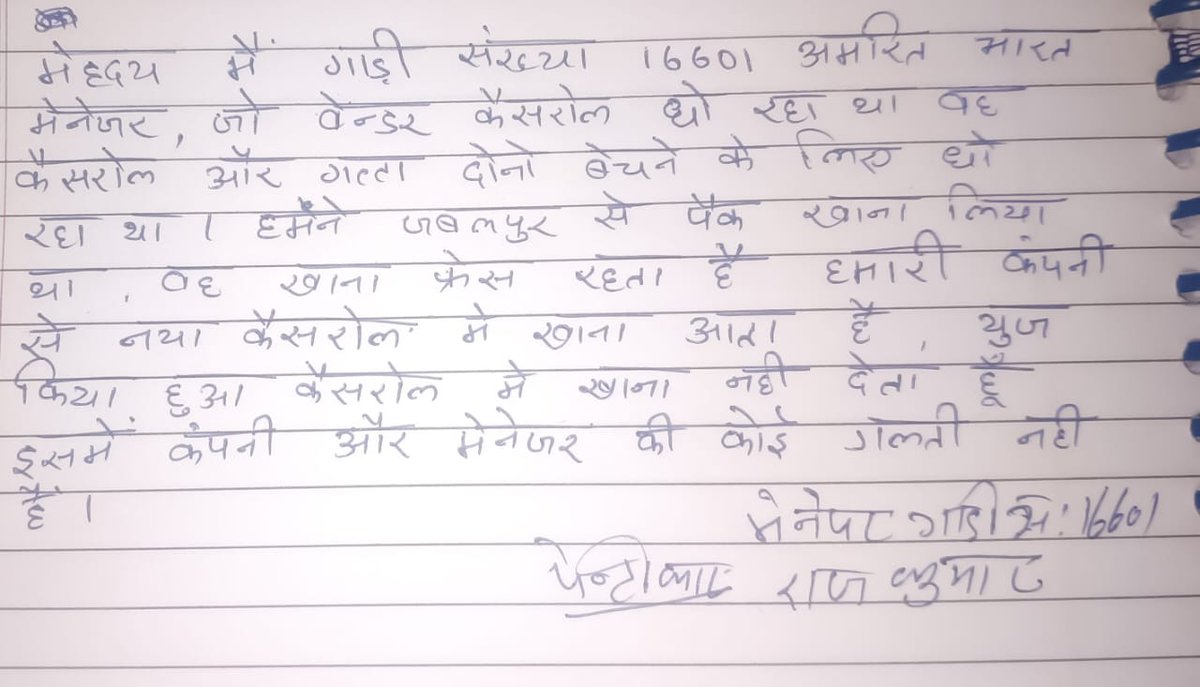 मेहदय मैं गाड़ी संख्या 16601 अमरित भारत
मेनेजर, जो वेन्डर कैसरोल धो रहा था वह
कैसरोल और गत्ता दोनो बेचने के लिए धो
रहा था । हमने जबलपुर से पैक खाना लिया
था , वह खाना फ्रेस रहता है हमारी कंपनी
से नया कैसरोल मे खाना आता है , युज
किया हुआ कैसरोल मे खाना नही देता हूँ
इसमें कंपनी और मेनेजर की कोई गलती नही
है ।
मेनेपर गाडी सं: 16601
पेन्ट्रीकार राज कुमार